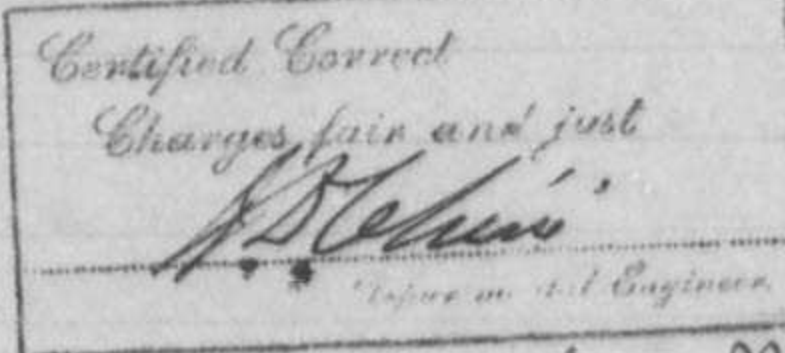 Certified Correct
Charges fair and just
Engineer